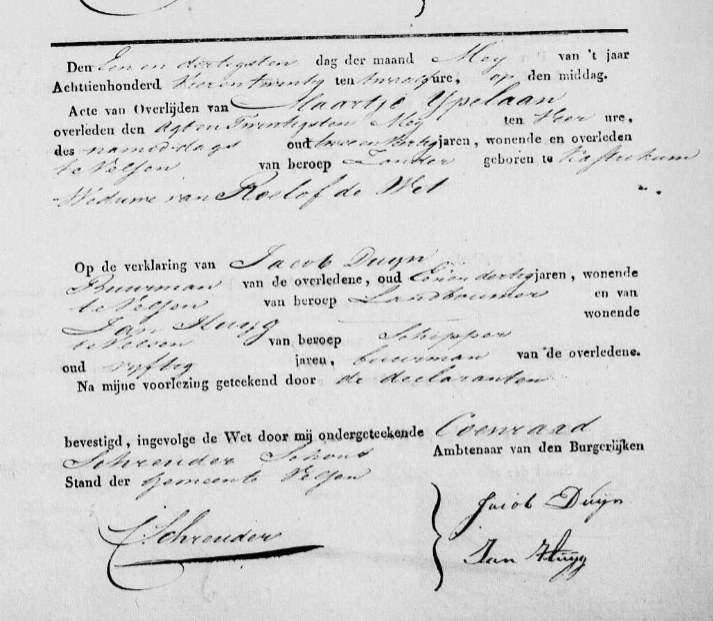 Den Een en dertigsten dag der maand Mey van 't jaar
Achttienhonderd Vierentwintig ten twaalf ure, op den middag.
Acte van Overlijden van Maartje Ypelaan
overleden den Agt en Twentigsten Mey ten Vier ure,
des namiddags oud jaren, wonende en overleden
te Velsen van beroep Zonder geboren te Kastrekum
Weduwe van Roelof de Wet
Op de verklaring van Jacob Duyn
Buurman van de overledene, oud en dertig jaren, wonende
te Velsen van beroep Landbouwer en van
Jan Huyg wonende
te Velsen van beroep Schipper
oud vyftig jaren, buurman van de overledene.
Na mijne voorlezing geteekend door de declaranten
bevestigd, ingevolge de Wet door mij ondergeteekende Coenraad
Schreuder Schout Ambtenaar van den Burgerlijken
Stand der Gemeente Velsen
Jacob Duyn
CSchreuder
Jan Huyg